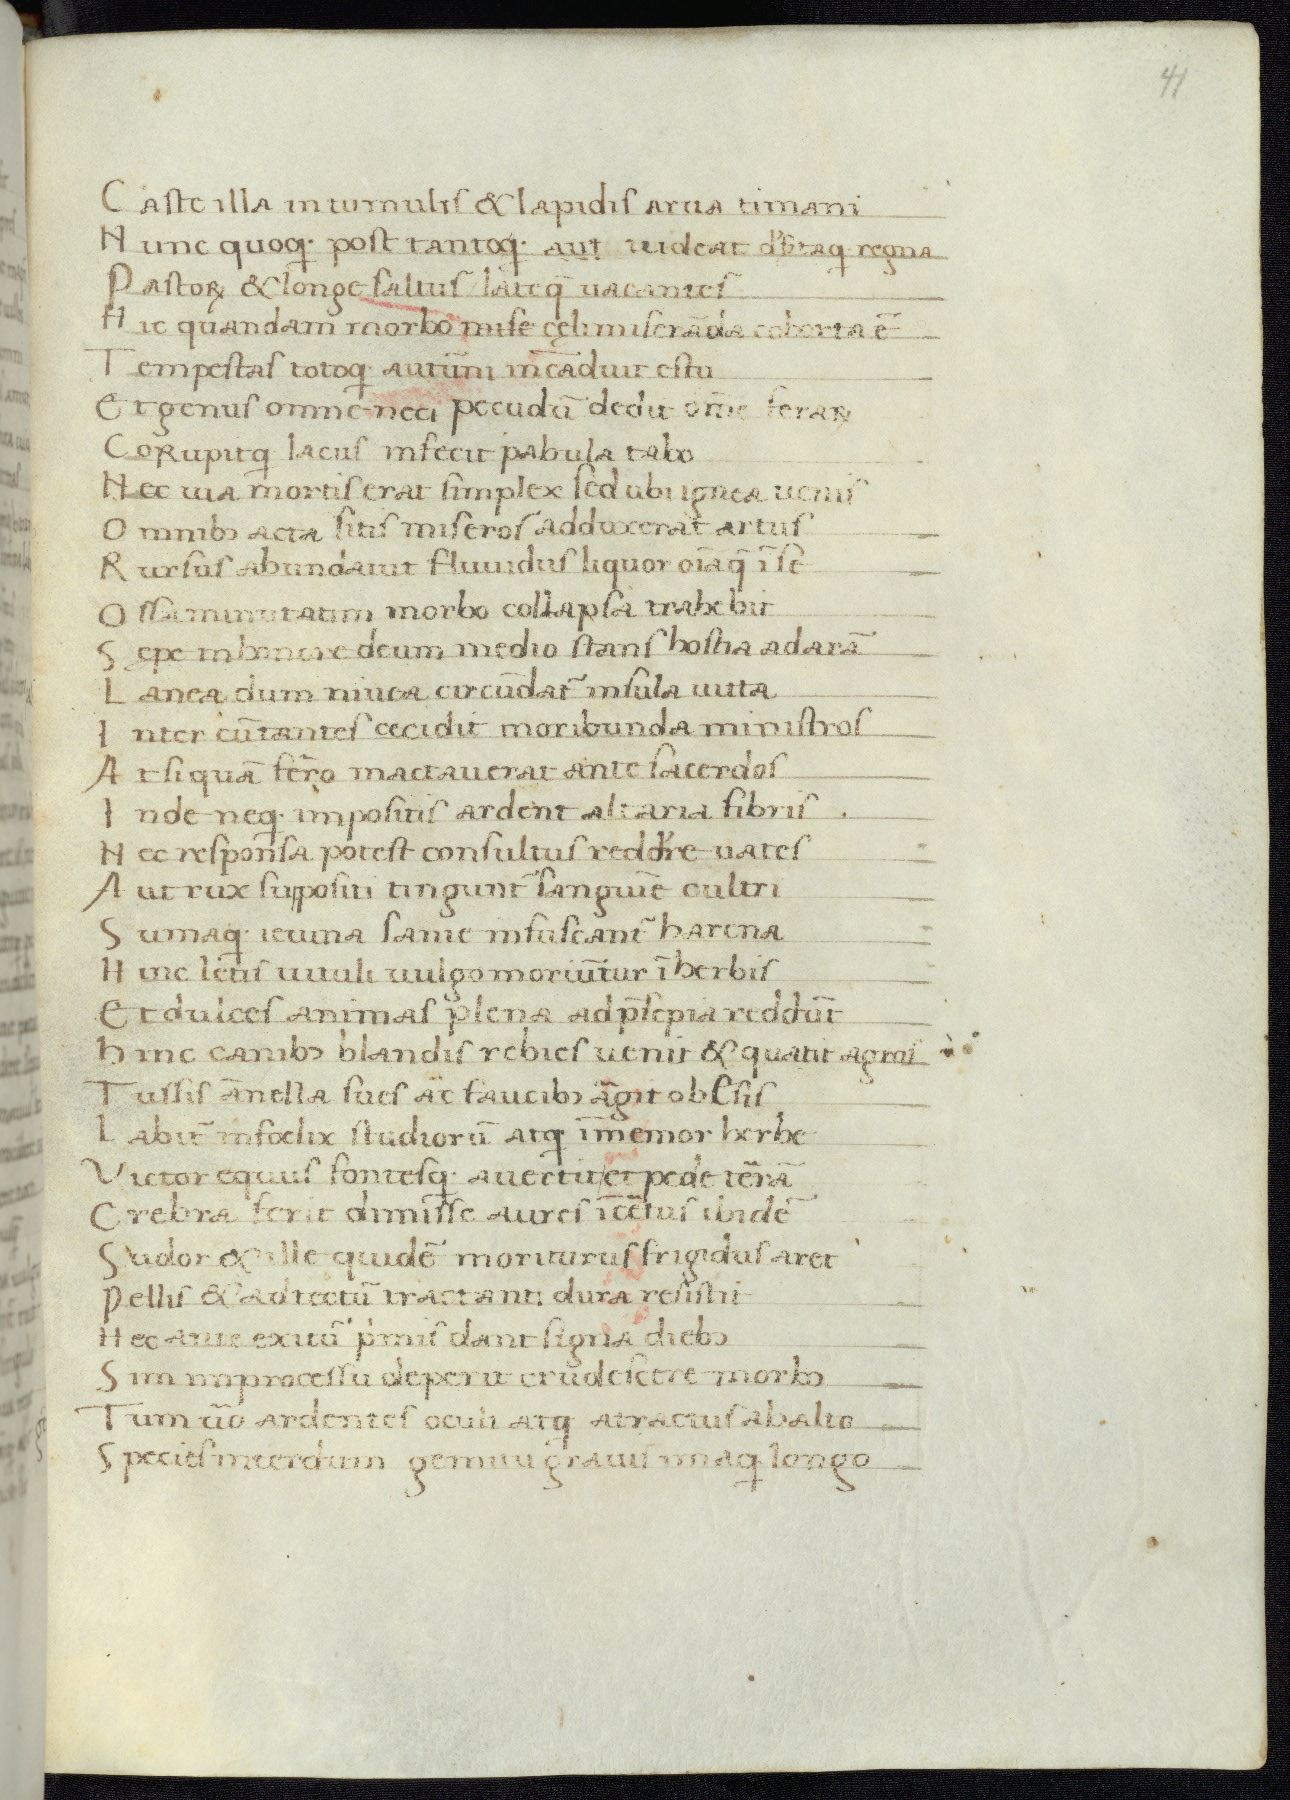 41
Caste illa in tumulis & lapidis arua timani
Nunc quoq· post tantoq· aut uideat d'sertaq· regna
Pastoꝝ & longe saltus lateq̄ uacantes
Hic quandam morbo cęli miserāda cohorta ē
Tempestas totoq· autūni incāduit estu
Et genus omne neci pecudū dedit om̄e feraꝝ
Corupitq· lacus infecit pabula tabo
Nec uia mortis erat simplex sed ubi ignea uenis
Omnibꝫ acta sitis miseros adduxerat artus
Rursus abundauit fluuidus liquor oīaq̄ ī se
Ossa minutatim morbo collapsa trahebit
Sepe in honore deum medio stans hostia ad arā
Lanea dum niuea circūdat̄ insula uitta
Inter cūtantes cecidit moribunda ministros
At si quā fero mactauerat ante sacerdos
Inde neq· impositis ardent altaria fibris .
Nec responsa potest consultus reddere uates
Aut rux suppositi tingunt̄ sanguīe cultri
Sumaq· ieiuna sanie infuscant̄ harena
Hinc letis uituli uulgo moriūtur ī herbis
Et dulces animas plena ad p̄sepia reddūt
Hinc canibꝫ blandis rebies uenit & quatit agros
Tussis ānella sues ac faucibꝫ āgit obesis
Labit̄ infoelix studiorū atq· īmemor herbe
Victor equus fontesq· auertit et pede terā
Crebra ferit dimisse aures īcētus ibidē
Sudor & ille quidē morituruſ frigidus aret
Pellis & ad tectū tractanti dura resistit
Hec ante exitiū p'mis dant signa diebꝫ
Sin in processu deperit crudescere morbꝫ
Tum ūo ardentes oculi atq· atractus ab alto
Species interdum gemitu grauis imaq· longo